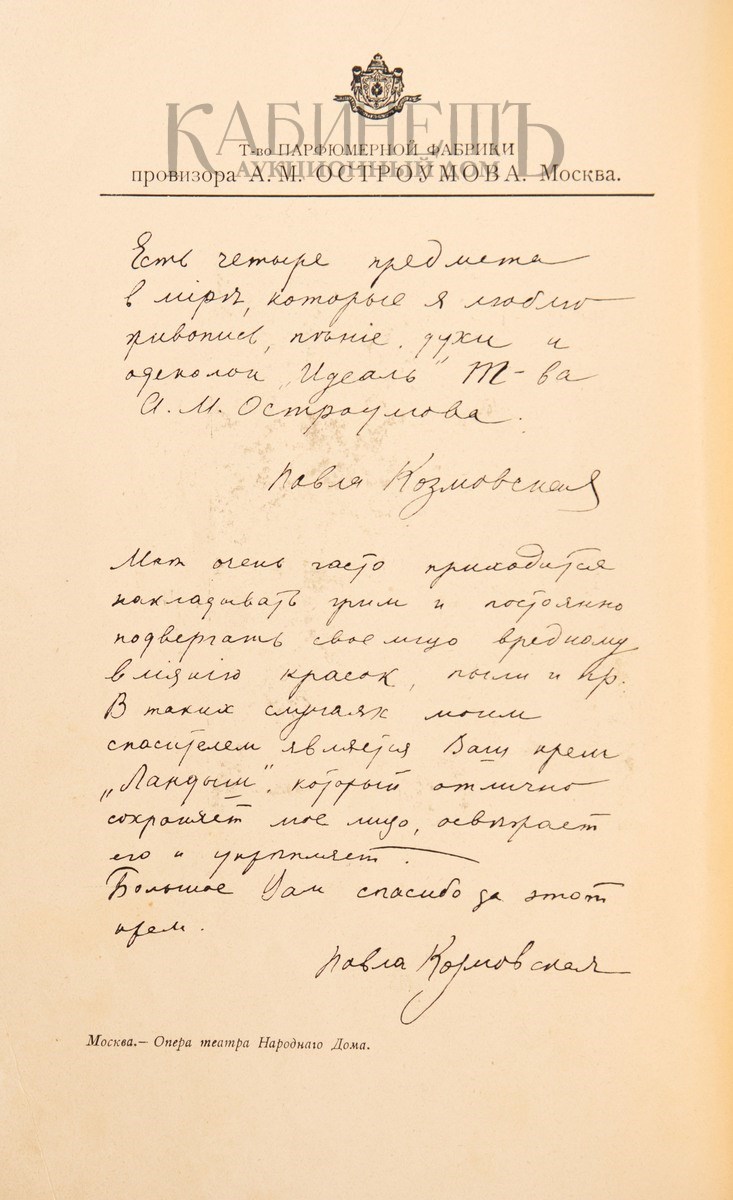 КАБИНЕТЪ
АУКЦИОННЫЙ ДОМ
Т-во ПАРФЮМЕРНОЙ ФАБРИКИ
провизора А. М. ОСТРОУМОВА. Москва.
Есть четыре предмета
в мірѣ, которые я люблю
живопись, пѣніе, духи и
одеколон „Идеаль" Т-ва
А. М. Остроумова.
Павла Козмовская
Мнѣ очень часто приходится
накладывать грим и постоянно
подвергать свое лицо вредному
вліянію красок, пыли и пр.
В таких случаях моим
спасителем является Ваш крем
„Ландыш", который отлично
сохраняет мое лицо, освѣжает
его и укрѣпляет.
Большое Вам спасибо за этот
крем.
Павла Козмовская
Москва.— Опера театра Народнаго Дома.